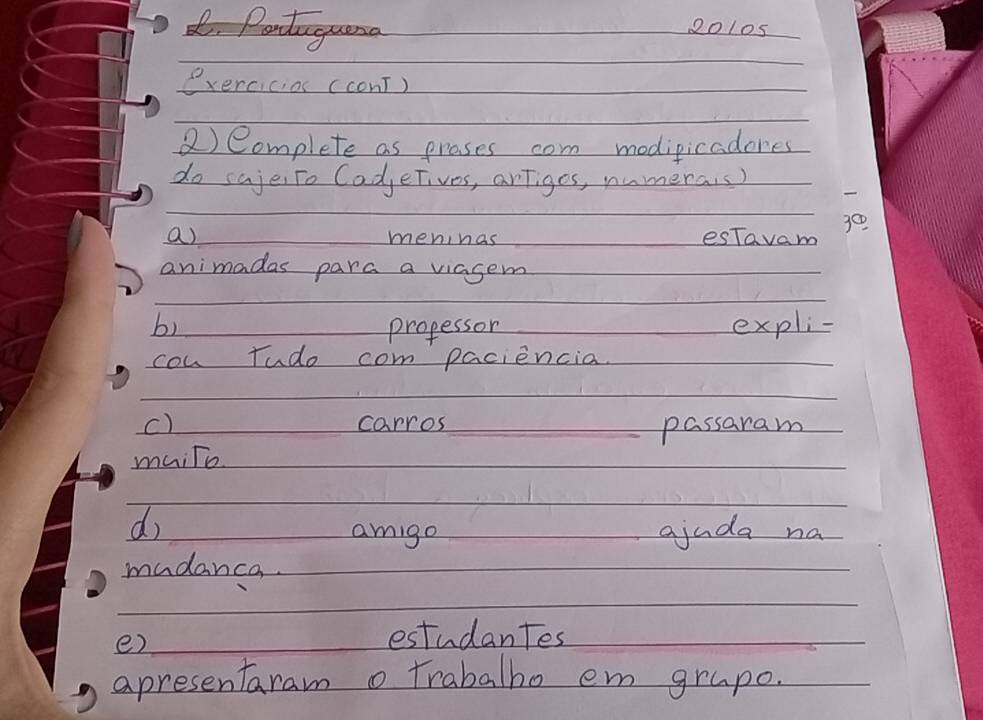 L. Portuguesa 20/05
Exercícios (cont)
2) Complete as frases com modificadores
do sujeito (adjetivos, artigos, numerais)
a) ________ meninas ________ estavam
animadas para a viagem
b) ________ professor ________ expli-
cou tudo com paciência.
c) ________ carros ________ passaram
muito.
d) ________ amigo ________ ajuda na
mudança.
e) ________ estudantes ________
apresentaram o trabalho em grupo.